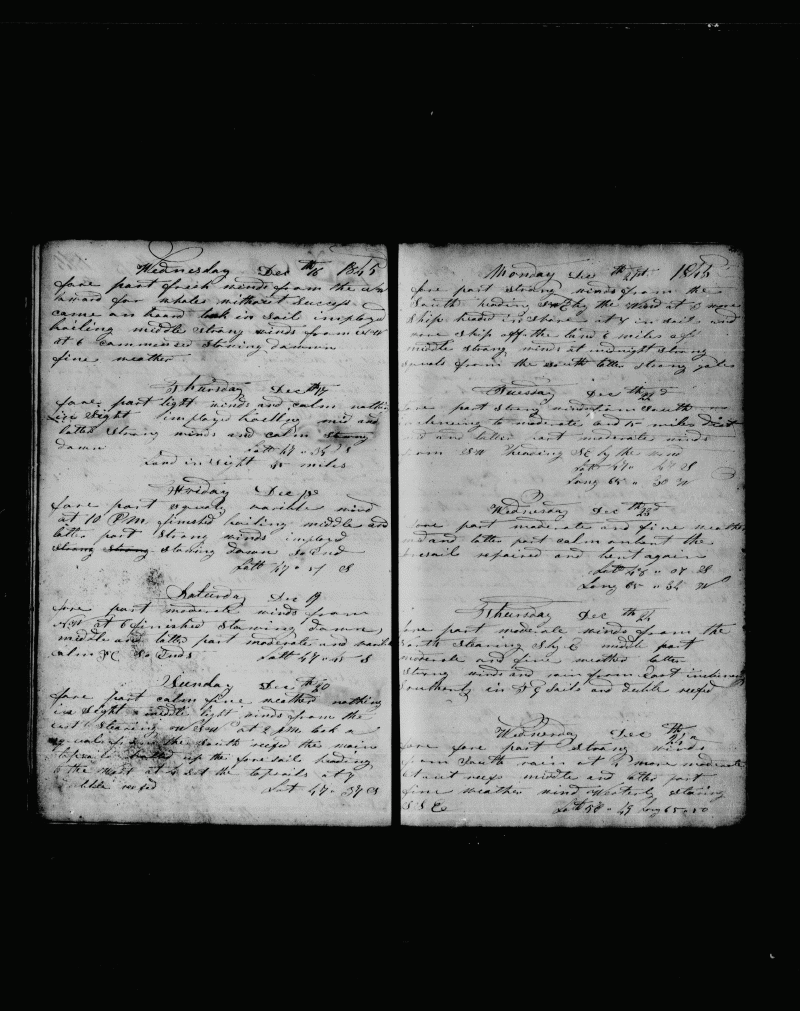 Wednesday Dec th16 1845
fore part fresh winds from the
lowered for whales without success
came on board took in sail imployed
boiling middle strong winds from
at 6 commenced stowing down
fine weather
Thursday Dec th17
fore part light winds and calm nothing
in Sight imployd boiling mid and
latter strong winds and calm strong
damn
Latt 47 " 34 S
Land in Sight 15 miles
Friday Dec 18
fore part squaly varible wind
at 10 P.M. finished boiling middle and
latter part strong winds imployed
strong strong stowing down So End
Latt 47 " 17 S
Saturday Dec 19
fore part moderate winds from
NW at 6 finished Stowing down
middle and latter part moderate and
calm So Ends Latt 47 " S
Sunday Dec th20
fore part calm fine weather nothing
in Sight middle light winds from the
east Stearing at 2 P.M. took a
from the South reefed the main
topsail hauled up the fore sails heading
to the at 4 Set the topsails at 7
duble reefed
Latt 47 " 57 S
Monday Dec th 21st 1845
fore part strong winds from the
South heading by the wind at 2 wore
Ship headed in Shore at 7 in Sail and
wore Ship off the land 6 miles off
middle strong winds at midnight strong
from the south latter strong gales
Tuesday Dec th22d
fore part strong winds from South
to moderate and 15 miles dist
and latter part moderate winds
from SW heading SE by the wind
Latt 47 " 47 S
Long 65 " 30 W
Wednesday Dec th23d
fore part moderate and fine weather
mid and latter part calm unbent the
repaired and bent again
Latt 48 " 08 S
Long 65 " 34 W
Thursday Dec th24
fore part moderate winds from the
South Stearing S by E middle part
moderate and fine weather latter
strong winds and rain from East
Southerly in F G Sails and duble reefed
Wednesday Dec th25
fore part strong winds
from South rain at 8 more moderate
let out reefs middle and latter part
fine weather wind westerly staring
S S E Latt 50 " 45 Long 65 " 50